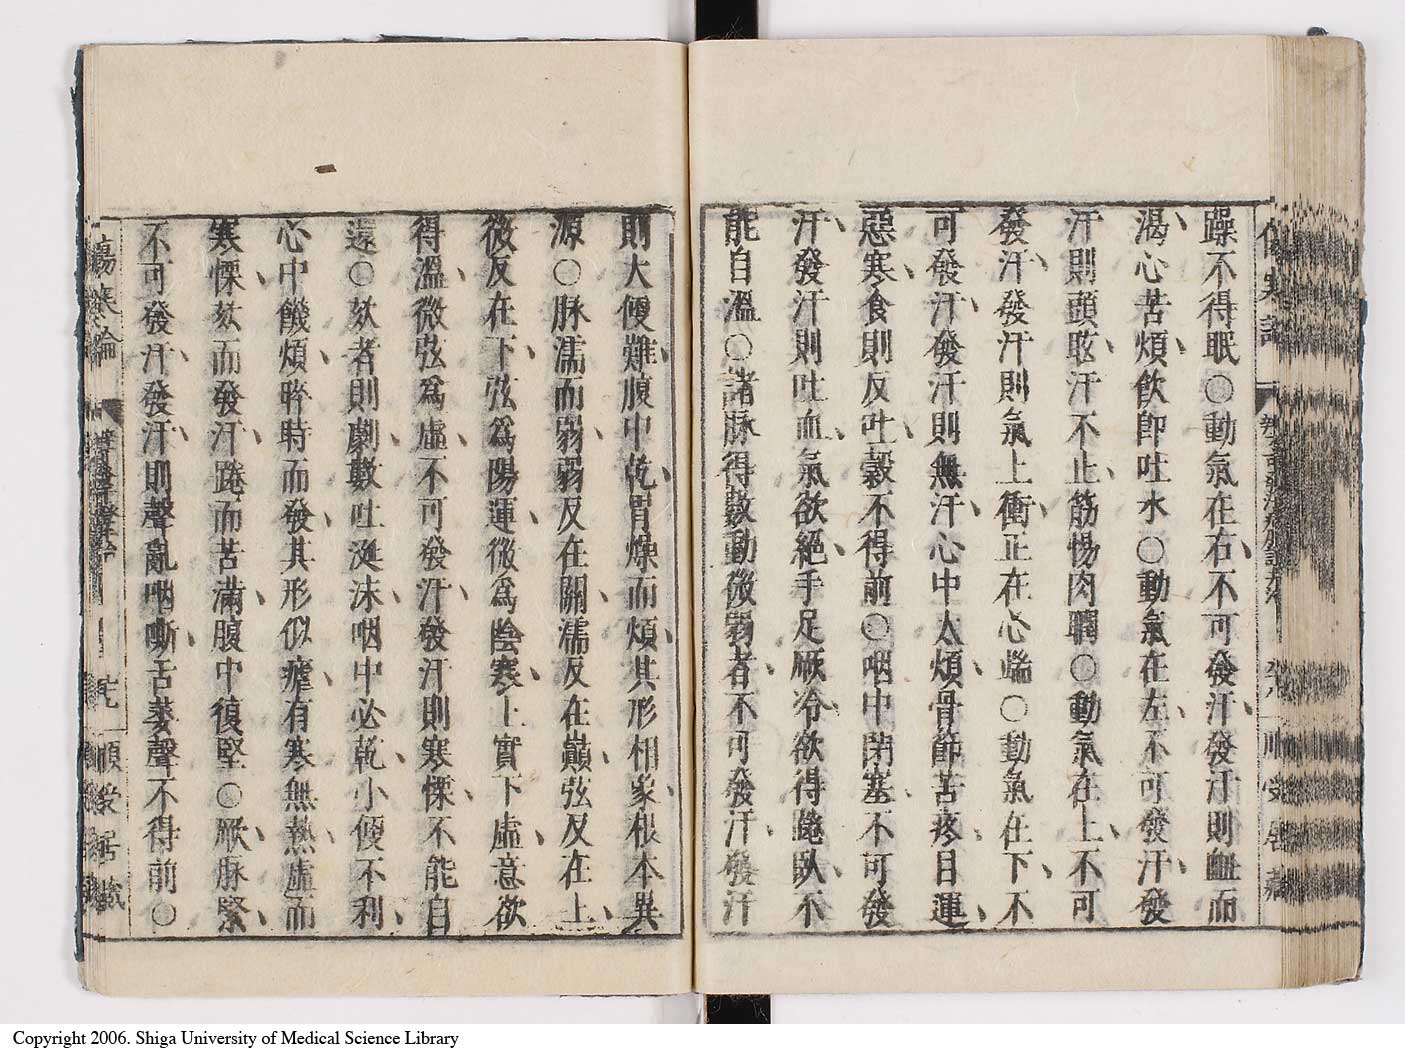 躁不得眠○動氣在右不可發汗發汗則衄而
渴心苦煩飲即吐水○動氣在左不可發汗發
汗則頭眩汗不止筋惕肉瞤○動氣在上不可
發汗發汗則氣上衝正在心端○動氣在下不
可發汗發汗則無汗心中大煩骨節苦疼目運
惡寒食則反吐穀不得前○咽中閉塞不可發
汗發汗則吐血氣欲絕手足厥冷欲得踡臥不
能自溫○諸脉得數動微弱者不可發汗發汗
則大便難腹中乾胃燥而煩其形相象根本異
源○脉濡而弱弱反在關濡反在巔弦反在上
微反在下弦爲陽運微爲陰寒上實下虛意欲
得溫微弦爲虛不可發汗發汗則寒慄不能自
還○欬者則劇數吐涎沫咽中必乾小便不利
心中饑煩晬時而發其形似瘧有寒無熱虛而
寒慄欬而發汗踡而苦滿腹中復堅○厥脉緊
不可發汗發汗則聲亂咽嘶舌萎聲不得前○
傷寒論
Copyright 2006. Shiga University of Medical Science Library